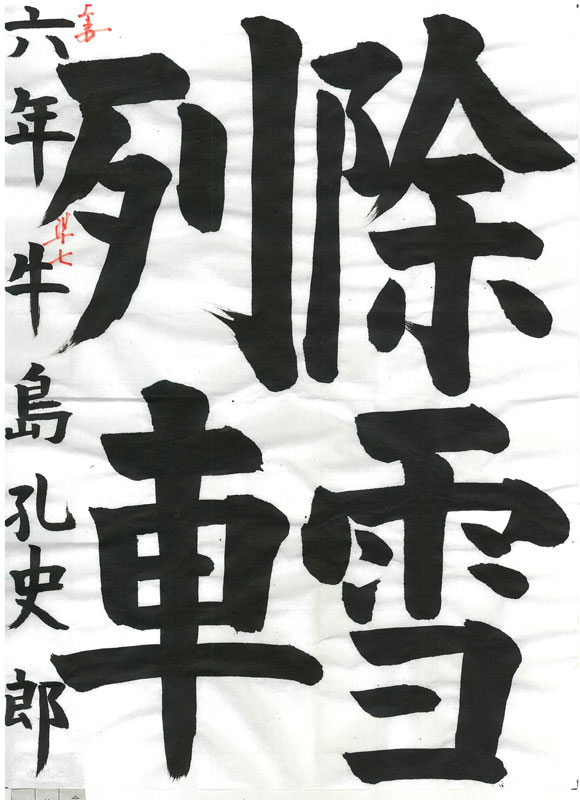 除雪
列車
六年 牛島孔史郎
準七